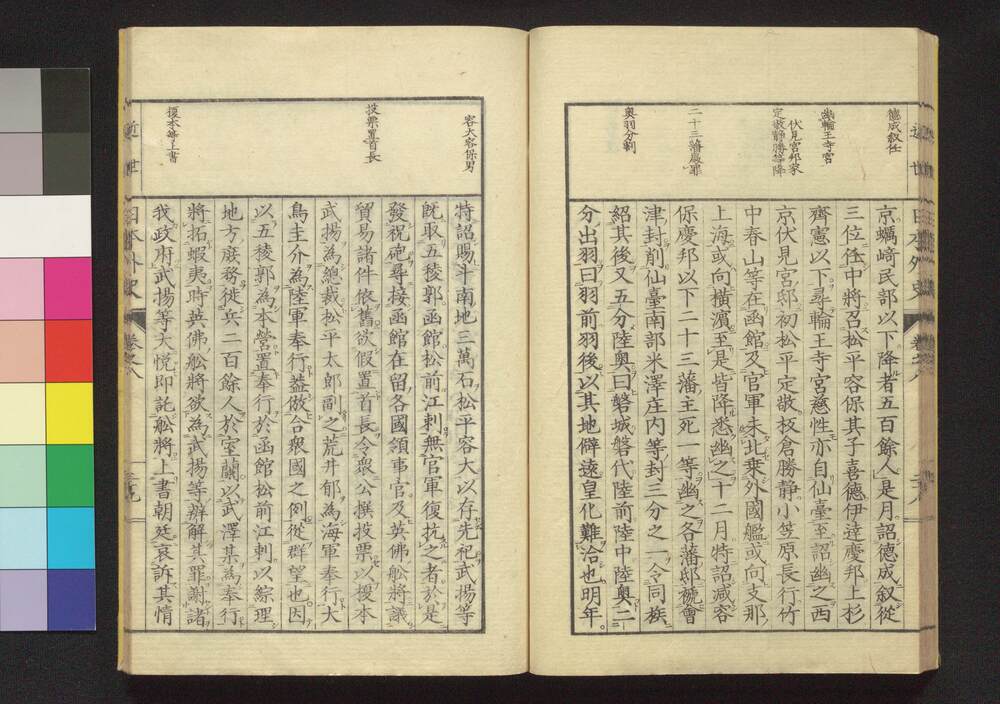 德成叙任
幽輪王寺宮
伏見宮邸家
定敬靜勝等降
二十三藩嚴罪
奥羽分割
京蠣﨑民部以下降者五百餘人是月詔德成叙從
三位任中將召松平容保其子喜德伊達慶邦上杉
齊憲以下尋輪王寺宮慈性亦自仙臺至詔幽之西
京伏見宮邸初松平定敬板倉勝靜小笠原長行竹
中春山等在函館及官軍未北乗外國艦或向支那
上海或向橫濵至是皆降悉幽之十二月特詔減容
保慶邦以下二十三藩主死一等幽之各藩邸褫會
津封削仙臺南部米澤庄内等封三分之一令同族
紹其後又五分陸奥曰磐城磐代陸前陸中陸奥二
分出羽曰羽前羽後以其地僻遠皇化難洽也明年
近世日本外史
卷之八
容大容保男
投票置首長
榎本等上書
特詔賜斗南地三萬石松平容大以存先祀武揚等
旣取五稜郭函館松前江刺無官軍復抗之者於是
發祝砲尋接函館在留各國領事官及英佛舩將議
貿易諸件依舊欲假置首長令衆公撰投票以榎本
武揚為總裁松平太郎副之荒井郁為海軍奉行大
鳥圭介為陸軍奉行葢倣合衆國之例從群望也因
以五稜郭為本營置奉行於函館松前江刺以綜理
地方庶務徙兵二百餘人於室蘭以武澤某為奉行
將拓蝦夷時英佛舩將欲為武揚等辨解其罪謝諸
我政府武揚等大悅即託舩將上書朝廷哀訴其情
近世日本外史
卷之八